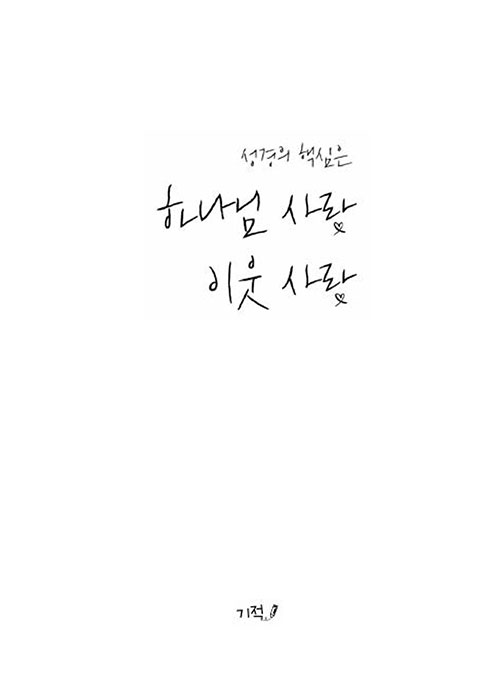 성경의 핵심은
하나님 사랑
이웃 사랑
기적